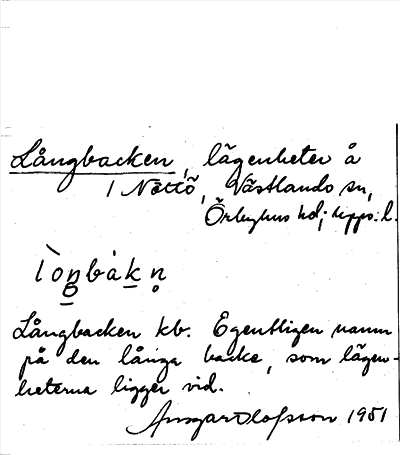 Långbacken, lägenheter å
1 Nöttö, Västlands sn,
Örbyhus hd; Upps. l.
lòŋbàkn̥
Långbacken kb. Egentligen namn
på den långa backe, som lägen-
heterna ligger vid.
Ansgar Olofsson 1951